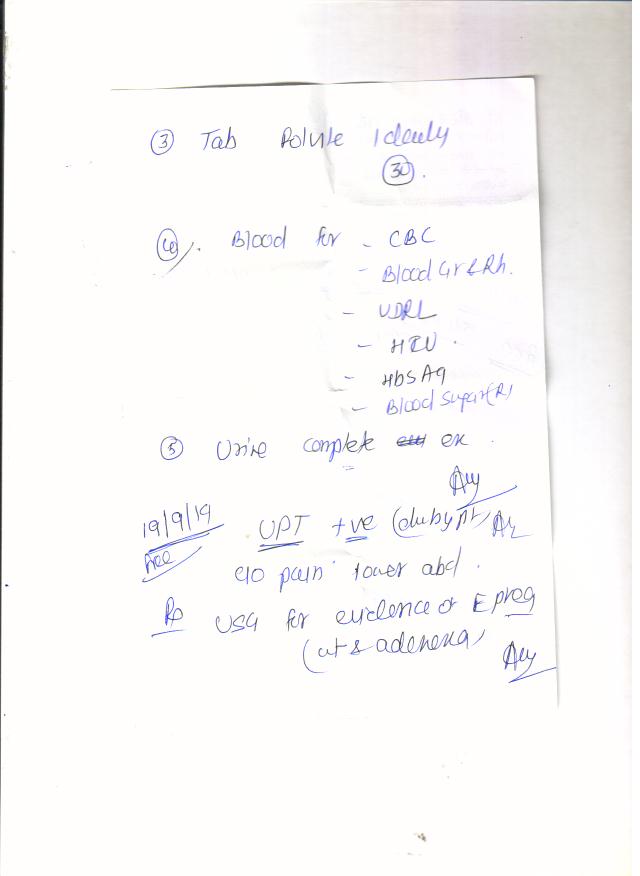 ③ Tab Folvite 1 daily
㉚.
④. Blood for - CBC
- Blood Gr & Rh.
- VDRL
- HIV.
- HbsAg
- Blood Sugar (R)
⑤ Urine complete ex.
19/9/19 UPT +ve (by pt)
c/o pain lower abd.
Rp USG for evidence of E preg
(ut & adenexa)